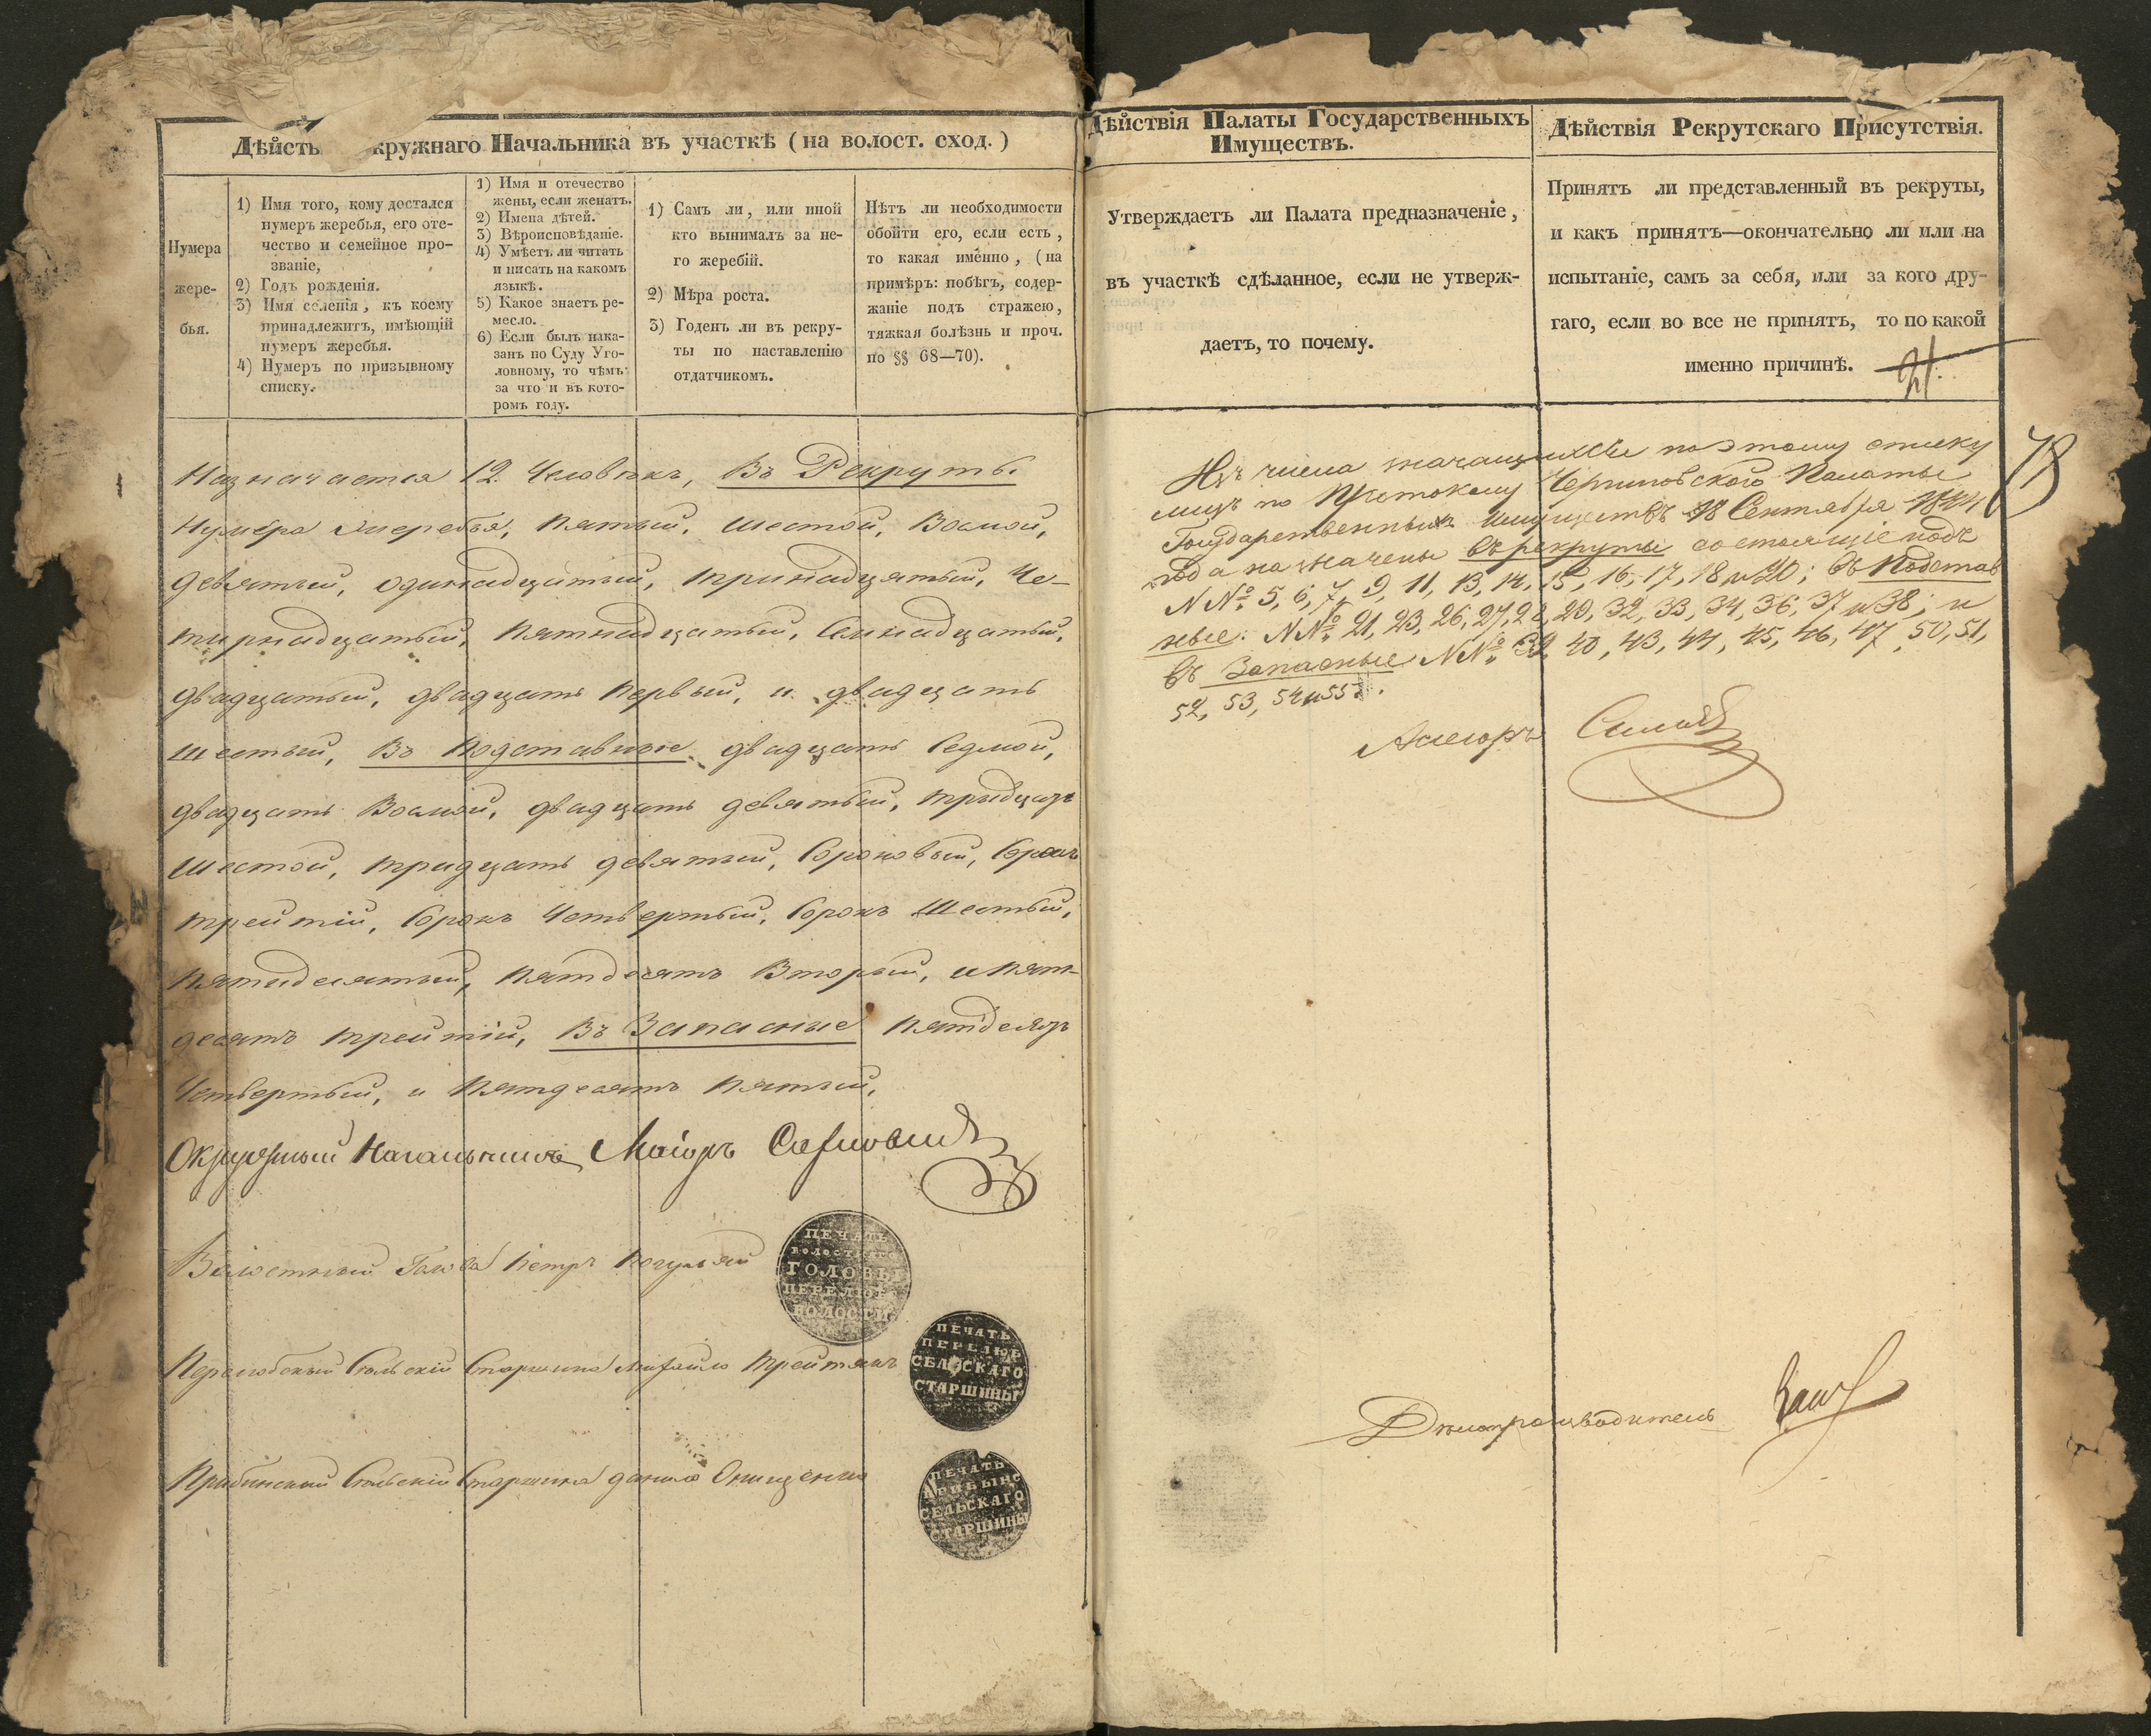 Дѣйств кружнаго Начальника въ участкѣ (на волост. сход.)
Нумера
жере-
бья.
1) Имя того, кому достался
нумеръ жеребья, его оте-
чество и семейное про-
званіе,
2) Годъ рожденія.
3) Имя селенія, къ коему
принадлежитъ, имѣющій
нумеръ жеребья.
4) Нумеръ по призывному
списку.
1) Имя и отечество
жены, если женатъ.
2) Имена дѣтей.
3) Вѣроисповѣданіе.
4) Умѣетъ ли читать
и писать на какомъ
языкѣ.
5) Какое знаетъ ре-
месло.
6) Если былъ нака-
занъ по Суду Уго-
ловному, то чѣмъ
за что и въ кото-
ромъ году.
1) Самъ ли, или иной
кто вынималъ за не-
го жеребій.
2) Мѣра роста.
3) Годенъ ли въ рекру-
ты по наставленію
отдатчикомъ.
Нѣтъ ли необходимости
обойти его, если есть,
то какая именно, (на
примѣръ: побѣгъ, содер-
жаніе подъ стражею,
тяжкая болѣзнь и проч.
по §§ 68—70).
Назначается 12. Человѣкъ, Въ Рекруты
Нумера Жеребья, пятый, шестой, Восмой,
девятый, одинадцатый, тринадцатый, Че-
тырнадцатый, пятнадцатый, Семнадцатый,
двадцатый, двадцать первый, и двадцать
шестый, Въ подставные двадцать Седмой,
двадцать Восмой, двадцать девятый, тридцать
шестой, тридцать девятый, Сороковый, Сорокъ
трейтій, Сорокъ Четвертый, Сорокъ Шестый,
пятидесятый, пятдесятъ Вторый, и пят-
десятъ трейтій, Въ Запасные пятдесятъ
Четвертый, и пятдесятъ пятый,
Окружный Начальникъ Маіоръ
Волостный Голова Петръ
ПЕЧАТЬ
ВОЛОСТНАГО
ГОЛОВЫ
ПЕРЕЛЮБ
ВОЛОСТИ
Перелюбскый Сельскій Старшина Михайло Трейтякъ
ПЕЧАТЬ
ПЕРЕЛЮБ
СЕЛЬСКАГО
СТАРШИНЫ
Прибинскый Сельскій Старшина данило Онищенко
ПЕЧАТЬ
ПРИБЫНС
СЕЛЬСКАГО
СТАРШИНЫ
Дѣйствія Палаты Государственныхъ
Имуществъ.
Утверждаетъ ли Палата предназначеніе,
въ участкѣ сдѣланное, если не утверж-
даетъ, то почему.
Дѣйствія Рекрутскаго Присутствія.
Принятъ ли представленный въ рекруты,
и какъ принятъ—окончательно ли или на
испытаніе, самъ за себя, или за кого дру-
гаго, если во все не принятъ, то по какой
именно причинѣ.
Изъ числа значащихся по этому списку
лицъ по Протоколу Черниговской Палаты
Государственныхъ Имуществъ 18 Сентября 1844
года назначены въ рекруты состоящіе подъ
N№ 5, 6, 7, 9, 11, 13, 14, 15, 16, 17, 18 и 20; въ Подстав
ные: N№ 21, 23, 26, 27, 28, 29, 32, 33, 34, 36, 37 и 38; и
въ Запасные N№ 39, 40, 43, 44, 45, 46, 47, 50, 51,
52, 53, 54 и 55.
Асесоръ
Дѣлопроизводитель